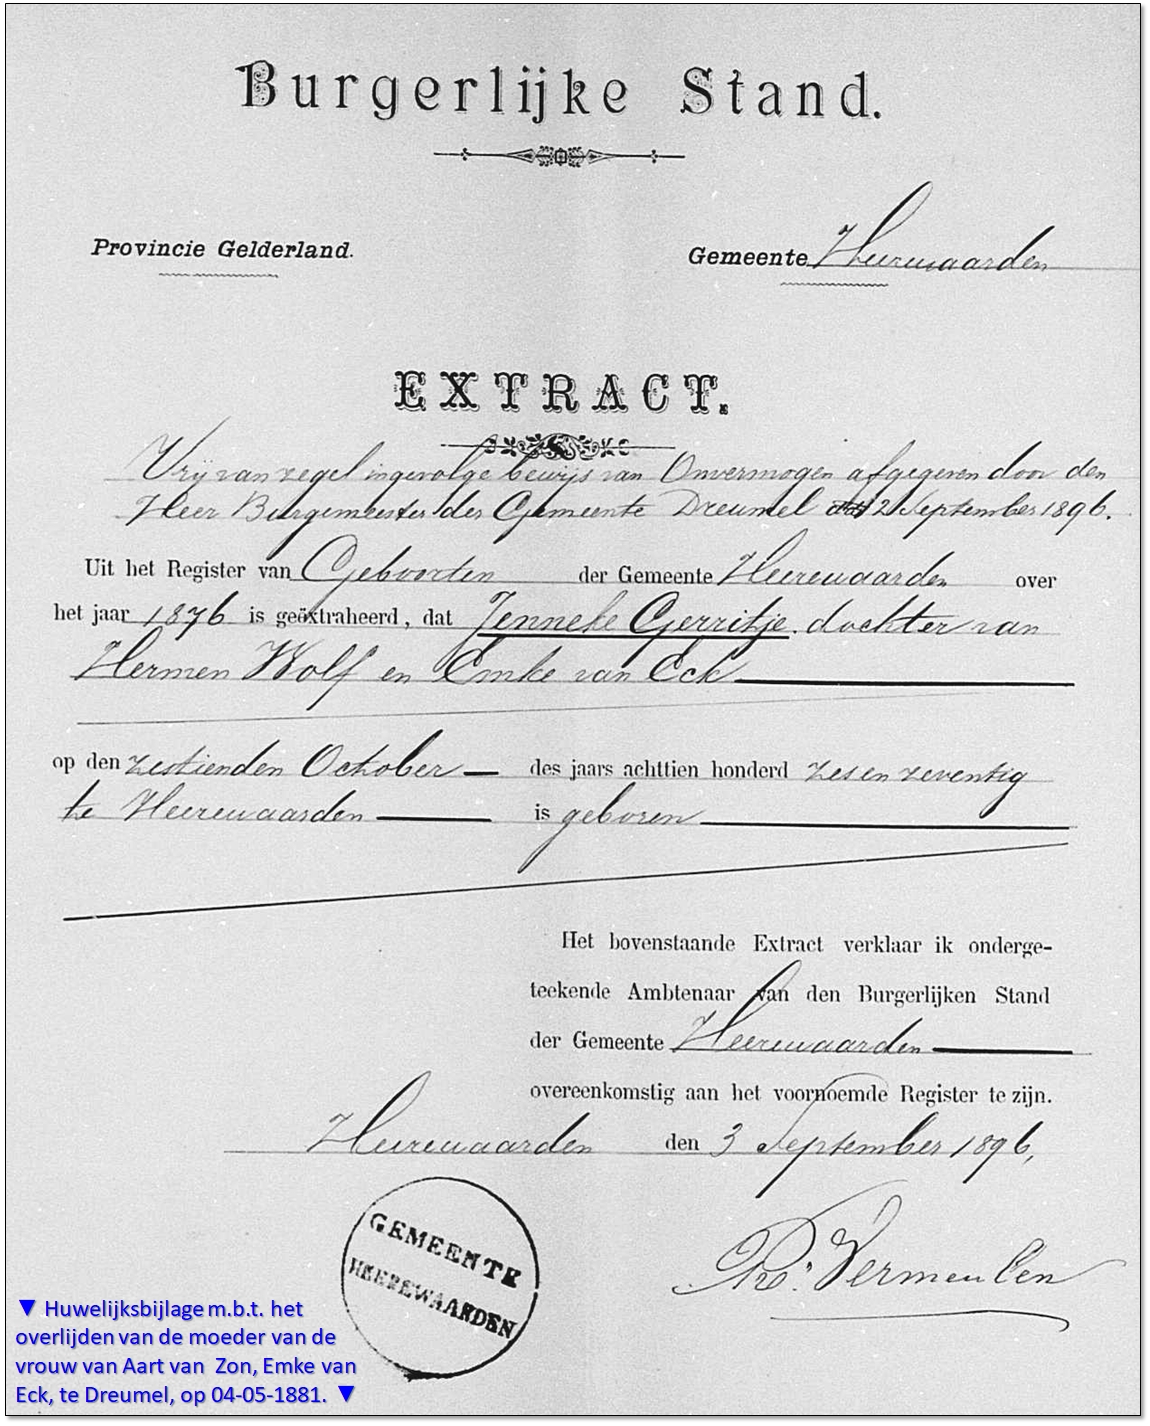 Burgerlijke Stand.
Provincie Gelderland.
Gemeente Heerewaarden
EXTRACT.
Vrij van zegel ingevolge bewijs van Onvermogen afgegeven door den
Heer Burgemeester der Gemeente Dreumel 2 September 1896.
Uit het Register van Geboorten der Gemeente Heerewaarden over
het jaar 1876 is geëxtraheerd, dat Jenneke Gerritje. dochter van
Hermen Wolf en Emke van Eck
op den zestienden October des jaars achttien honderd zes en zeventig
te Heerewaarden is geboren
Het bovenstaande Extract verklaar ik onderge-
teekende Ambtenaar van den Burgerlijken Stand
der Gemeente Heerewaarden
overeenkomstig aan het voornoemde Register te zijn.
Heerewaarden den 3 September 1896,
GEMEENTE
HEEREWAARDEN
Vermeulen
▼ Huwelijksbijlage m.b.t. het
overlijden van de moeder van de
vrouw van Aart van Zon, Emke van
Eck, te Dreumel, op 04-05-1881. ▼